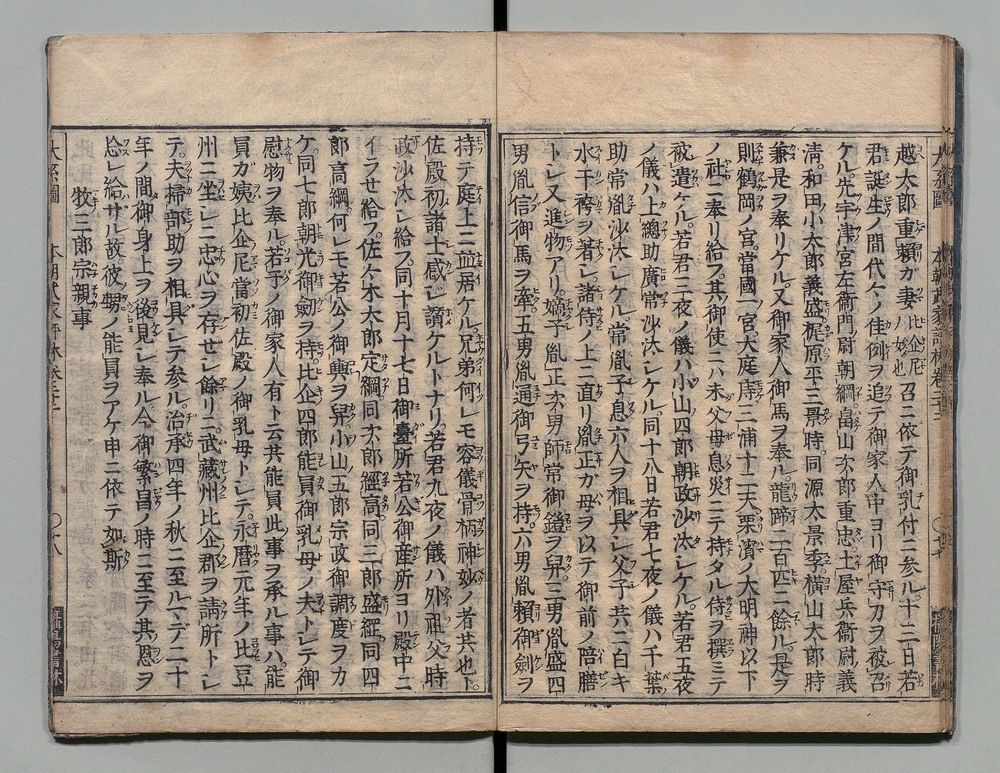 越太郎重頼ガ妻比企尼ノ娘也召ニ依テ御乳付ニ参ル十三日若
君誕生ノ間代々ノ佳例ヲ追テ御家人中ヨリ御守刀ヲ被召
ケル先宇津宮左衛門尉朝綱畠山次郎重忠土屋兵衛尉義
清和田小太郎義盛梶原平三景時同源太景季横山太郎時
兼是ヲ奉リケル又御家人御馬ヲ奉ル龍蹄二百四ニ餘ル是ヲ
則鶴岡ノ宮當國一宮大庭庤三浦十二天栗濱ノ大明神以下
ノ社ニ奉リ給フ其御使ニハ未父母息災ニテ持タル侍ヲ撰ミテ
被遣ケル若君三夜ノ儀ハ小山四郎朝政沙汰シケル若君五夜
ノ儀ハ上總助廣常沙汰シケル同十八日若君七夜ノ儀ハ千葉
助常胤沙汰シケル常胤子息六人ヲ相具シ父子共ニ白キ
水干袴ヲ著シ諸侍ノ上ニ直リ胤正ガ母ヲ以テ御前ノ陪膳
トシ又進物アリ嫡子胤正次男師常御鎧ヲ舁三男胤盛四
男胤信御馬ヲ牽五男胤通御弓矢ヲ持六男胤頼御劍ヲ
持テ庭上ニ並居ケル兄弟何レモ容儀骨柄神妙ノ者共也ト
佐殿初諸士感シ讃ケルトナリ若君九夜ノ儀ハ外祖父時
政沙汰シ給フ同十月十七日御臺所若公御産所ヨリ殿中ニ
イラせ給フ佐々木太郎定綱同次郎經高同三郎盛經同四
郎高綱何レモ若公ノ御輿ヲ舁小山五郎宗政御調度ヲカ
ケ同七郎朝光御劍ヲ持比企四郎能員御乳母ノ夫トシテ御
慰物ヲ奉ル若干ノ御家人有ト云共能員此事ヲ承ル事ハ能
員ガ姨比企尼當初佐殿ノ御乳母トシテ永暦元年ノ比豆
州ニ坐シニ忠心ヲ存せシ餘リニ武藏州比企郡ヲ請所トシ
テ夫掃部助ヲ相具シテ参ル治承四年ノ秋ニ至ルマデ二十
年ノ間御身上ヲ後見シ奉ル今御繁昌ノ時ニ至テ其恩ヲ
忘レ給サル故彼甥ノ能員ヲアケ申ニ依テ如斯
牧三郎宗親事